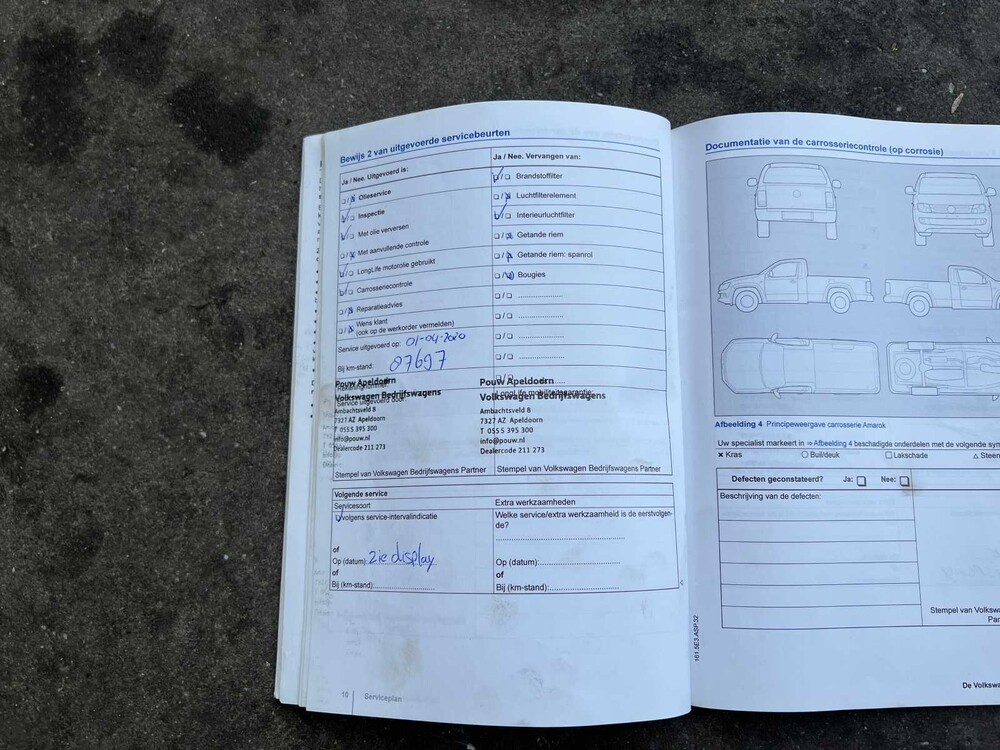 Bewijs 2 van uitgevoerde servicebeurten
Ja / Nee. Uitgevoerd is:
Olieservice
Inspectie
Met olie verversen
Met aanvullende controle
LongLife motorolie gebruikt
Carrosseriecontrole
Reparatieadvies
Wens klant
(ook op de werkorder vermelden)
Service uitgevoerd op: 01-04-2020
Bij km-stand: 87697
Rekeningnummer:
Service uitgevoerd door:
Pouw Apeldoorn
Volkswagen Bedrijfswagens
Ambachtsveld 8
7327 AZ Apeldoorn
T 055 5 395 300
info@pouw.nl
Dealercode 211 273
Stempel van Volkswagen Bedrijfswagens Partner
Ja / Nee. Vervangen van:
Brandstoffilter
Luchtfilterelement
Interieurluchtfilter
Getande riem
Getande riem: spanrol
Bougies
LongLife mobiliteitsgarantie:
Pouw Apeldoorn
Volkswagen Bedrijfswagens
Ambachtsveld 8
7327 AZ Apeldoorn
T 055 5 395 300
info@pouw.nl
Dealercode 211 273
Stempel van Volkswagen Bedrijfswagens Partner
Volgende service
Servicesoort
volgens service-intervalindicatie
of
Op (datum): zie display
of
Bij (km-stand):
Extra werkzaamheden
Welke service/extra werkzaamheid is de eerstvolgen-
de?
Op (datum):
of
Bij (km-stand):
10 Serviceplan
Documentatie van de carrosseriecontrole (op corrosie)
Afbeelding 4 Principeweergave carrosserie Amarok
Uw specialist markeert in ⇒ Afbeelding 4 beschadigde onderdelen met de volgende
Kras
Buil/deuk
Lakschade
Defecten geconstateerd? Ja: Nee:
Beschrijving van de defecten:
Stempel van
161.5E3.ASP.32